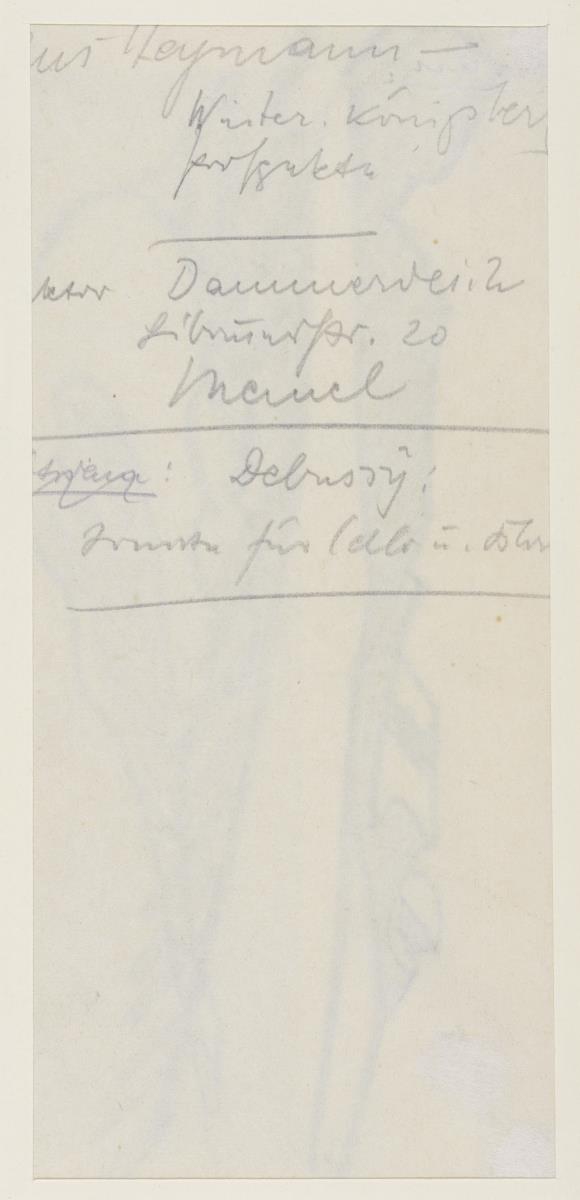 us Heymann —
Winter. Königsberg
Prospekte
ktor Dammerdeich
Libauerstr. 20
Memel
Debussy:
Sonate für Cello u.